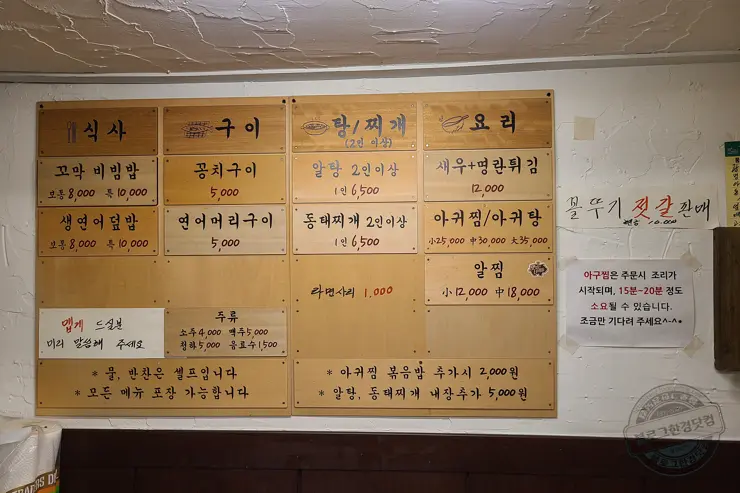 식사
꼬막 비빔밥
보통 8,000 특 10,000
생연어덮밥
보통 8,000 특 10,000
맵게 드실분
미리 말씀해 주세요
구이
꽁치구이
5,000
연어머리구이
5,000
주류
소주 4,000 맥주 5,000
청하 5,000 음료수 1,500
* 물, 반찬은 셀프입니다
* 모든 메뉴 포장 가능합니다
탕/찌개
(2인 이상)
알탕 2인이상
1인 6,500
동태찌개 2인이상
1인 6,500
라면사리 1,000
요리
새우+명란튀김
12,000
아귀찜/아귀탕
小 25,000 中 30,000 大 35,000
알찜
小 12,000 中 18,000
* 아귀찜 볶음밥 추가시 2,000원
* 알탕, 동태찌개 내장추가 5,000원
꼴뚜기 젓갈 판매
10,000
아구찜은 주문시 조리가
시작되며, 15분~20분 정도
소요될 수 있습니다.
조금만 기다려 주세요^-^*
블로그한경닷컴